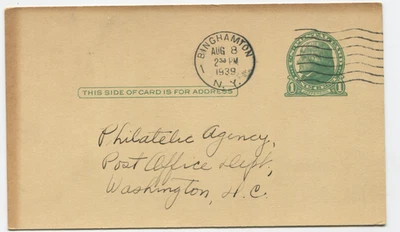 BINGHAMTON
AUG 8
1939
N.Y.
THIS SIDE OF CARD IS FOR ADDRESS
1 1
Philatelic Agency,
Post Office Dept,
Washington, D.C.